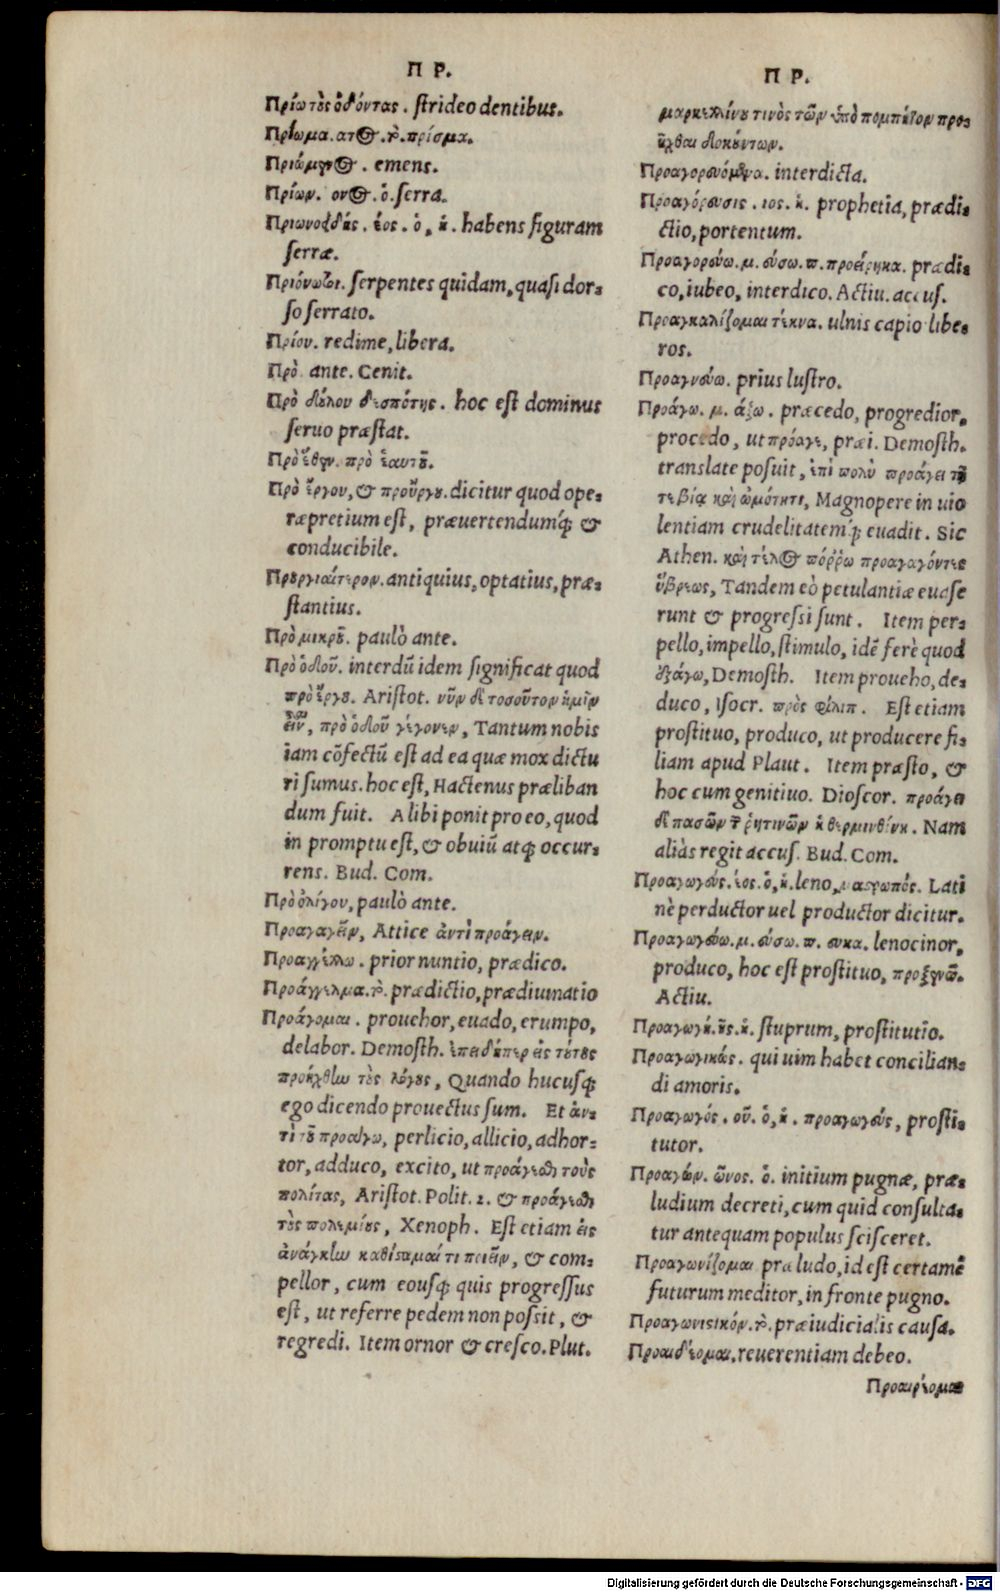 Π Ρ.
Πρίω τοὺς ὀδόντας. ſtrideo dentibus.
Πρίωμα. ατος. τὸ. πρίσμα.
Πριάμενος. emens.
Πρίων. ονος. ὁ. ſerra.
Πριωνοειδής. έος. ὁ, ἡ. habens figuram
ſerræ.
Πριόνωτοι. ſerpentes quidam, quaſi dor-
ſo ſerrato.
Πρίου. redime, libera.
Πρὸ ante. Genit.
Πρὸ δούλου δεσπότης. hoc eſt dominus
ſeruo præſtat.
Πρὸ ἕθεν. πρὸ ἑαυτοῦ.
Πρὸ ἔργου, & προὔργου. dicitur quod ope-
ræpretium eſt, præuertendumq́; &
conducibile.
Προυργιαίτερον. antiquius, optatius, præ-
ſtantius.
Πρὸ μικροῦ. paulò ante.
Πρὸ ὁδοῦ. interdū idem ſignificat quod
πρὸ ἔργου. Ariſtot. νῦν δὲ τοσοῦτον ἡμῖν
εἶν, πρὸ ὁδοῦ γέγονεν, Tantum nobis
iam cōfectū eſt ad ea quæ mox dictu
ri ſumus. hoc eſt, Hactenus præliban
dum fuit. Alibi ponit pro eo, quod
in promptu eſt, & obuiū atq; occur-
rens. Bud. Com.
Πρὸ ὀλίγου, paulò ante.
Προαγαγεῖν, Attice ἀντὶ προάγειν.
Προαγγέλλω. prior nuntio, prædico.
Προάγγελμα. τὸ. prædictio, prædiuinatio
Προάγομαι. prouehor, euado, erumpo,
delabor. Demoſth. ἐπειδήπερ εἰς τούτους
προήχθην τοὺς λόγους, Quando hucuſq;
ego dicendo prouectus ſum. Et ἀν-
τὶ τοῦ προάγω, perlicio, allicio, adhor-
tor, adduco, excito, ut προάγεσθαι τοὺς
πολίτας, Ariſtot. Polit. 2. & προάγεσθαι
τοὺς πολεμίους, Xenoph. Eſt etiam εἰς
ἀνάγκην καθίσταμαί τι ποιεῖν, & com-
pellor, cum eouſq; quis progreſſus
eſt, ut referre pedem non poſsit, &
regredi. Item ornor & creſco. Plut.
Π Ρ.
μαρκελλίνου τινὸς τῶν ὑπὸ πομπηΐου προ-
ῆχθαι δοκούντων.
Προαγορευόμενα. interdicta.
Προαγόρευσις. ιος. ἡ. prophetia, prædi-
ctio, portentum.
Προαγορεύω. μ. εύσω. π. προείρηκα. prædi-
co, iubeo, interdico. Actiu. accuſ.
Προαγκαλίζομαι τέκνα. ulnis capio libe-
ros.
Προαγνεύω. prius luſtro.
Προάγω. μ. άξω. præcedo, progredior,
procedo, ut πρόαγε, præi. Demoſth.
translate poſuit, ἐπὶ πολὺ προάγει τῇ
τε βίᾳ καὶ ὠμότητι, Magnopere in uio
lentiam crudelitatemq́; euadit. Sic
Athen. καὶ τέλος πόῤῥω προαγαγόντες
ὕβρεως, Tandem eò petulantiæ euaſe
runt & progreſsi ſunt. Item per-
pello, impello, ſtimulo, idē ferè quod
ἐξάγω, Demoſth. Item proueho, de-
duco, Iſocr. πρὸς φίλιπ. Eſt etiam
proſtituo, produco, ut producere fi-
liam apud Plaut. Item præſto, &
hoc cum genitiuo. Dioſcor. προάγει
δὲ πασῶν τῶν ῥητινῶν ἡ θερμινθίνη. Nam
aliàs regit accuſ. Bud. Com.
Προαγωγεύς. έος. ὁ, ἡ. leno, μαστρωπός. Lati
nè perductor uel productor dicitur.
Προαγωγεύω. μ. εύσω. π. ευκα. lenocinor,
produco, hoc eſt proſtituo, προξενῶ.
Actiu.
Προαγωγή. ῆς. ἡ. ſtuprum, proſtitutio.
Προαγωγικάς. qui uim habet concilian-
di amoris.
Προαγωγός. οῦ. ὁ, ἡ. προαγωγεύς, proſti-
tutor.
Προαγών. ῶνος. ὁ. initium pugnæ, præ-
ludium decreti, cum quid conſulta-
tur antequam populus ſciſceret.
Προαγωνίζομαι præludo, id eſt certamē
futurum meditor, in fronte pugno.
Προαγωνιστικόν. τὸ. præiudicialis cauſa.
Προαιδέομαι, reuerentiam debeo.
Προαιρέομαι
Digitalisierung gefördert durch die Deutsche Forschungsgemeinschaft - DFG